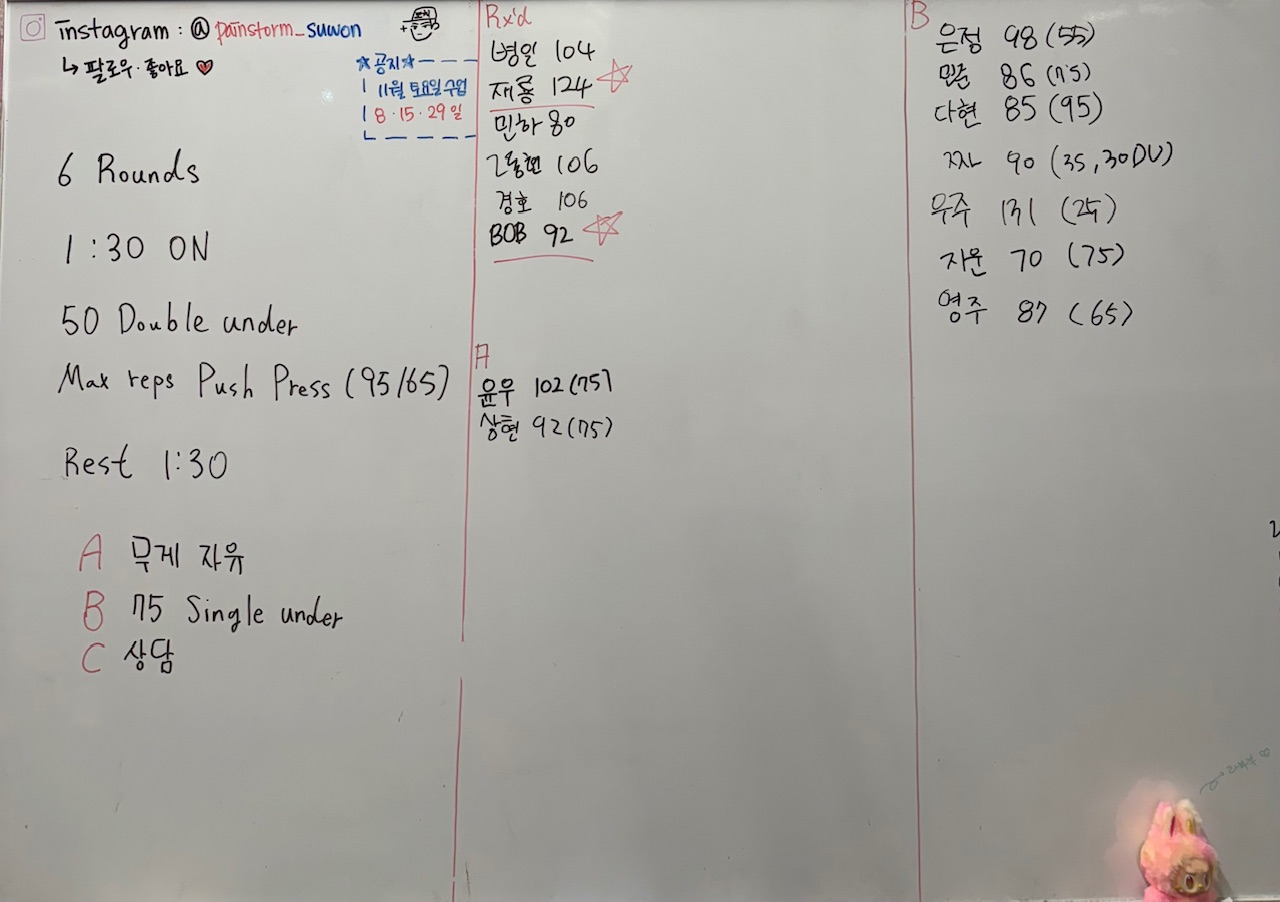 instagram : @painstorm_suwon
↳ 팔로우·좋아요 ♥
☆공지☆
11월 토요일 수업
8·15·29일
6 Rounds
1:30 ON
50 Double under
Max reps Push Press (95/65)
Rest 1:30
A 무게 자유
B 75 Single under
C 상담
Rx'd
병일 104
재룡 124 ☆
민하 80
106
경호 106
BOB 92 ☆
A
윤우 102(75)
상현 92(75)
B
은정 98(55)
민준 86(75)
다현 85(95)
90 (35, 30DU)
우주 131 (25)
지운 70 (75)
영주 87 (65)